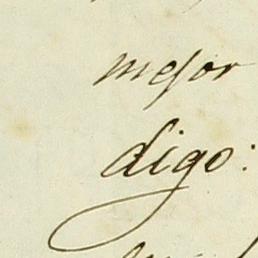 mejor
digo: